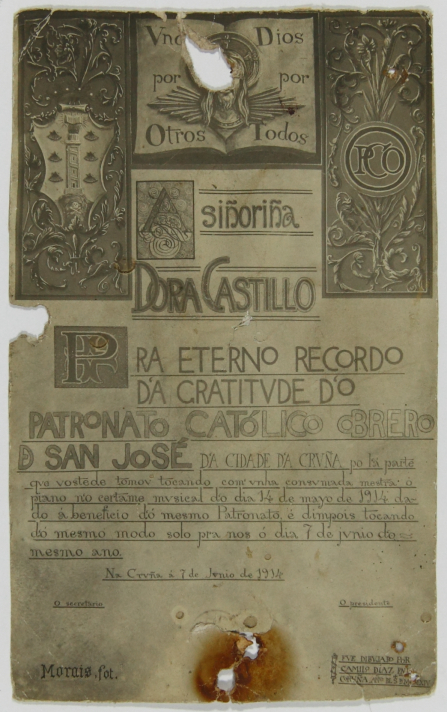 Vno Dios
por por
Otros Todos
PCO
A siñoriña
DORA CASTILLO
PRA ETERNO RECORDO
D'A GRATITVDE D'O
PATRONATO CATÓLICO OBRERO
D SAN JOSÉ D'A CIDADE D'A CRVÑA, po la parte
que vostede tomov tocando com'vnha consvmada mestra ó
piano n'o certame mvsical do dia 14 de mayo de 1914 da-
do á beneficio do mesmo Patronato, é dimpois tocando
do mesmo modo solo pra nos ó dia 7 de jvnio do
mesmo ano.
Na Crvña á 7 de Jvnio de 1914
O secretario O presidente
Morais, fot.
FVE DIBVJADO POR
CAMILO DIAZ
CORVÑA